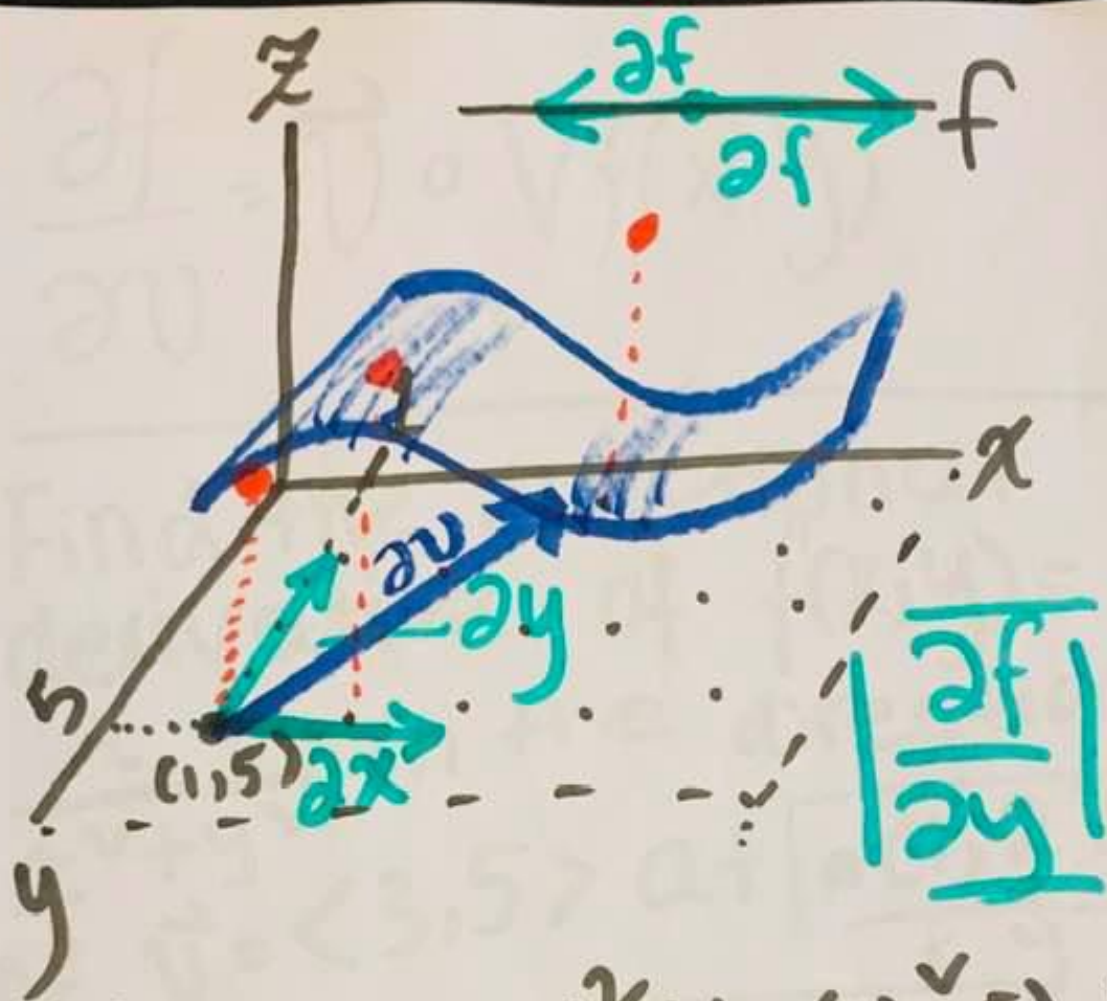 z
∂f
f
∂f
x
∂v
∂y
5
(1,5)
∂x
∂f
∂y
y